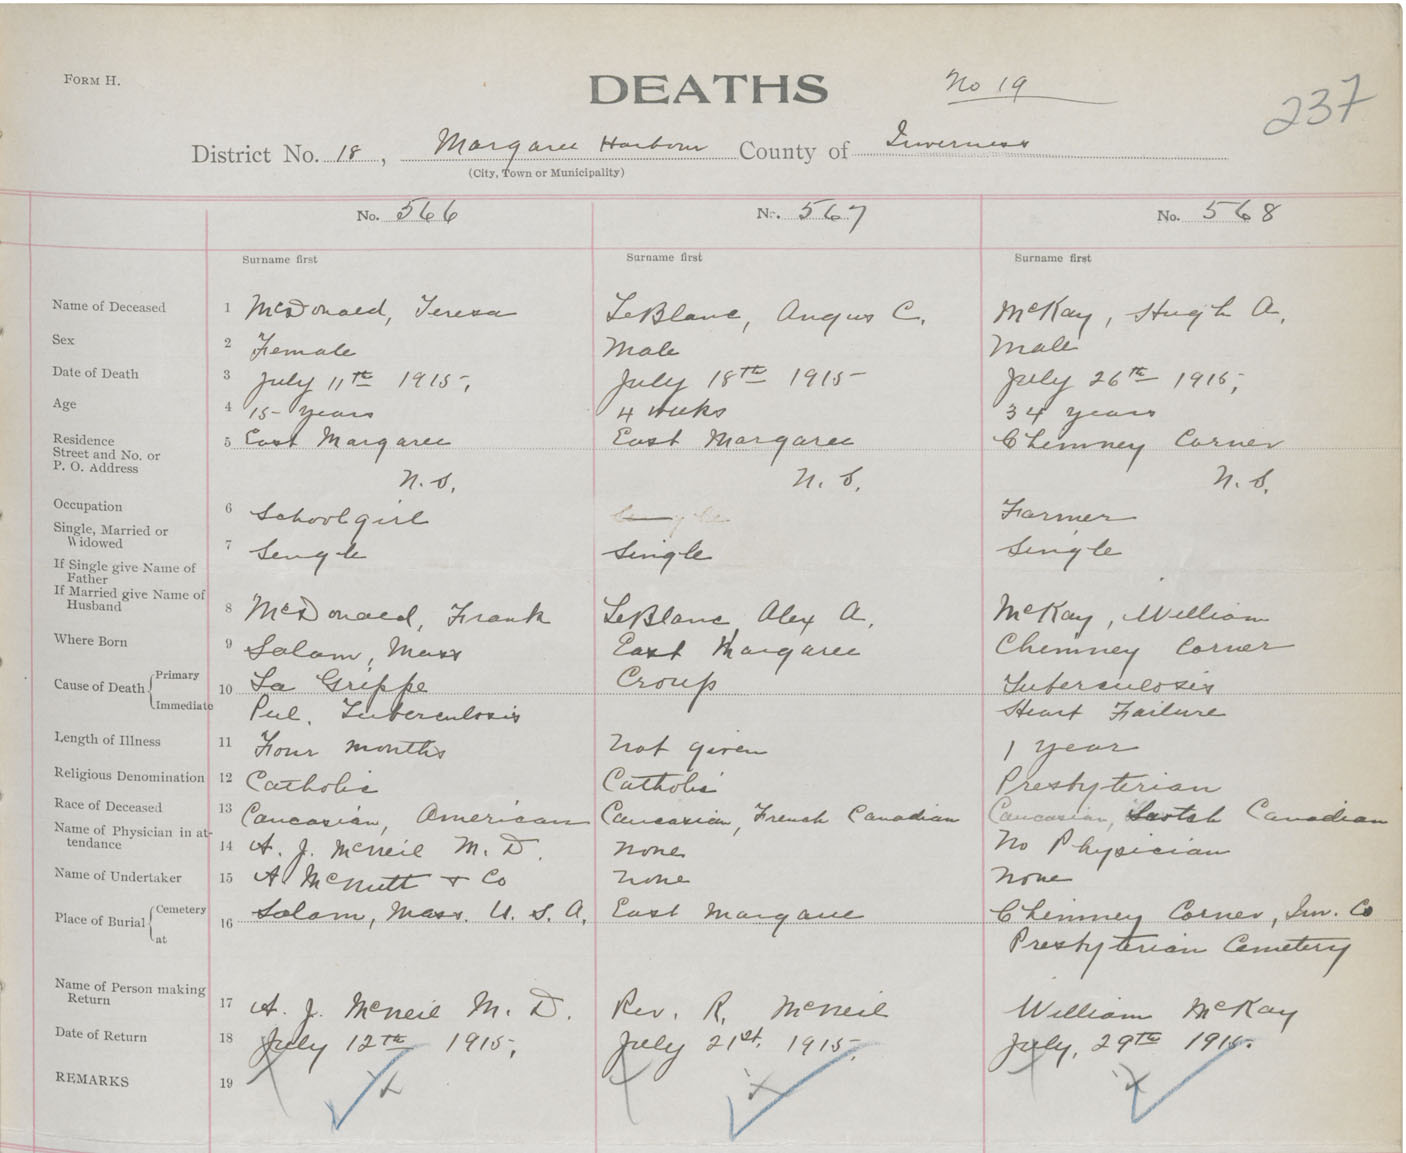 FORM H.
DEATHS
No 19
237
District No. 18, Margaree Harbour County of Inverness
(City, Town or Municipality)
No. 566 No. 567 No. 568
Surname first Surname first Surname first
Name of Deceased 1 McDonald, Teresa LeBlanc, Angus C. McKay, Hugh A.
Sex 2 Female Male Male
Date of Death 3 July 11th 1915, July 18th 1915 July 26th 1915,
Age 4 15 years 4 weeks 34 years
Residence 5 East Margaree East Margaree Chimney Corner
Street and No. or
P. O. Address N. S. N. S. N. S.
Occupation 6 Schoolgirl Farmer
Single, Married or
Widowed 7 Single Single Single
If Single give Name of
Father
If Married give Name of
Husband 8 McDonald, Frank LeBlanc Alex A. McKay, William
Where Born 9 Salam, Mass East Margaree Chimney Corner
Cause of Death Primary 10 La Grippe Croup Tuberculosis
Immediate Pul. Tuberculosis Heart Failure
Length of Illness 11 Four months Not given 1 year
Religious Denomination 12 Catholic Catholic Presbyterian
Race of Deceased 13 Caucasian, American Caucasian, French Canadian Caucasian, Scotch Canadian
Name of Physician in at-
tendance 14 A. J. McNeil M. D. None No Physician
Name of Undertaker 15 A McNutt + Co None None
Place of Burial Cemetery 16 Salam, Mass. U. S. A. East Margaree Chimney Corner, Inv. Co
at Presbyterian Cemetery
Name of Person making
Return 17 A. J. McNeil M. D. Rev. R. McNeil William McKay
Date of Return 18 July 12th 1915, July 21st. 1915, July, 29th 1915.
REMARKS 19